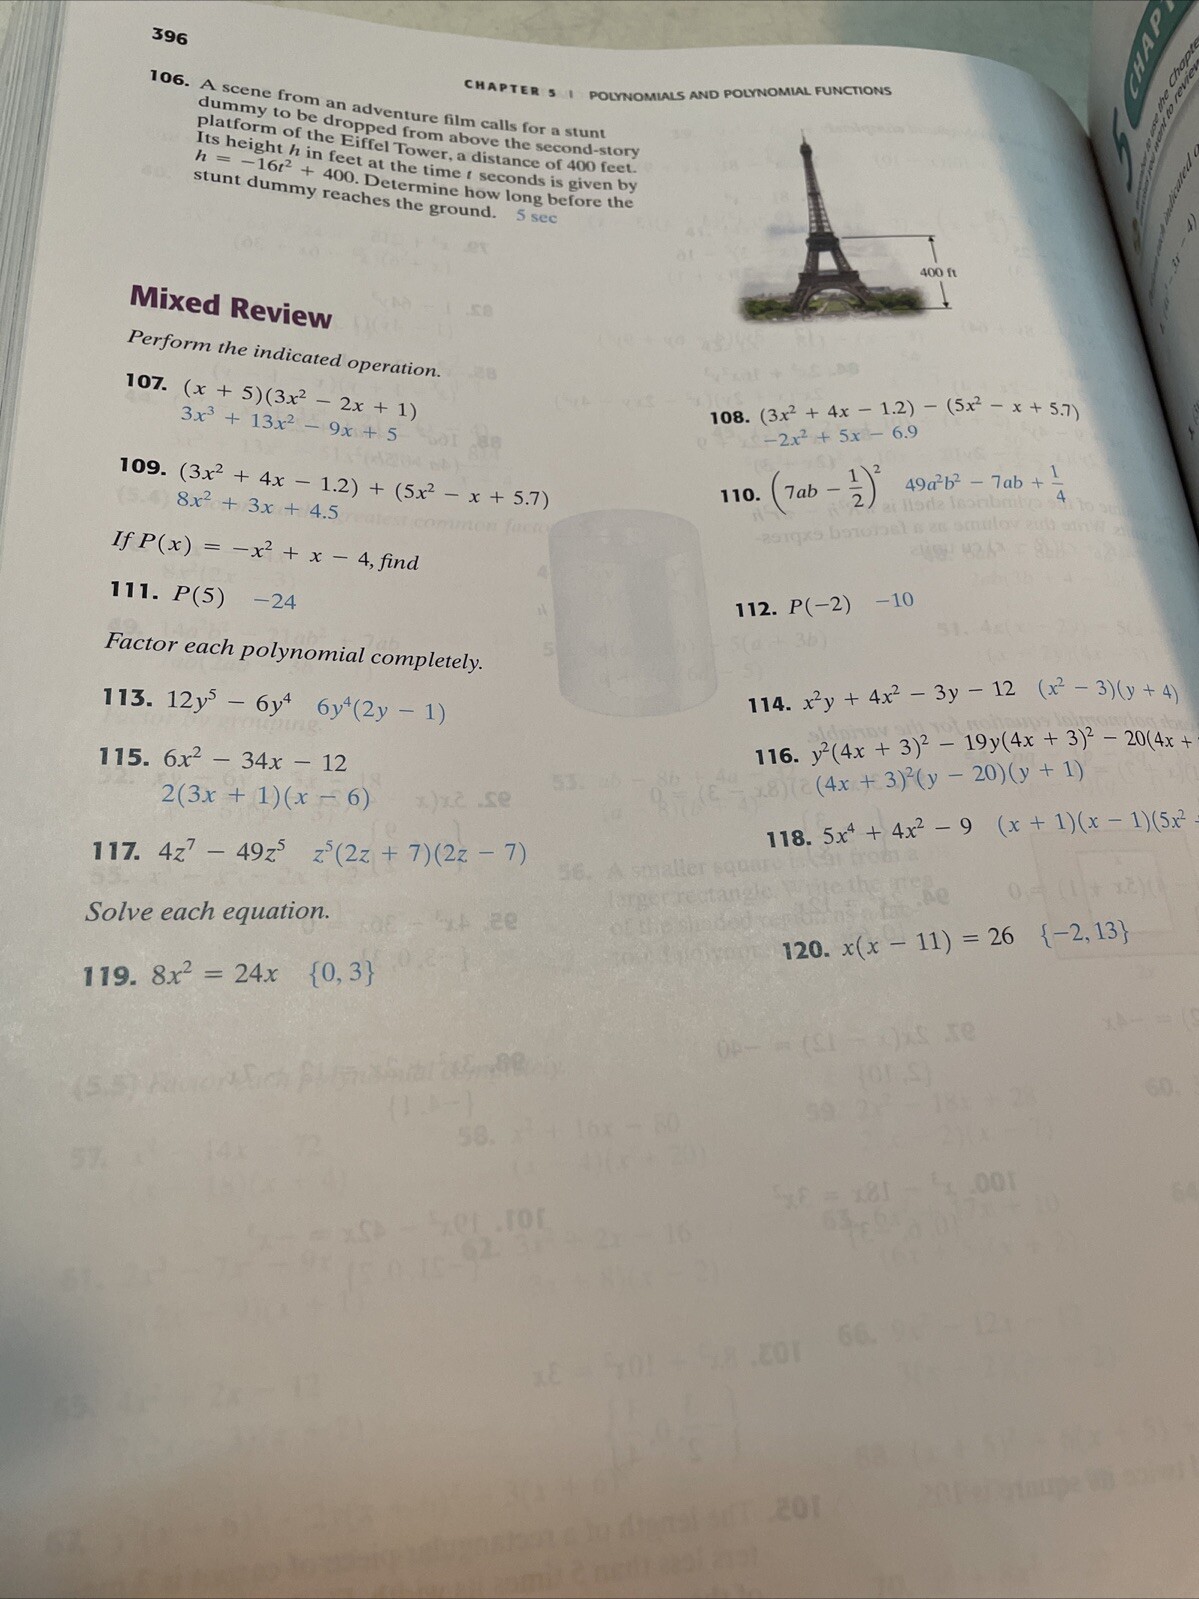 396
CHAPTER 5 | POLYNOMIALS AND POLYNOMIAL FUNCTIONS
106. A scene from an adventure film calls for a stunt
dummy to be dropped from above the second-story
platform of the Eiffel Tower, a distance of 400 feet.
Its height h in feet at the time t seconds is given by
h = −16t² + 400. Determine how long before the
stunt dummy reaches the ground. 5 sec
400 ft
Mixed Review
Perform the indicated operation.
107. (x + 5)(3x² − 2x + 1)
3x³ + 13x² − 9x + 5
108. (3x² + 4x − 1.2) − (5x² − x + 5.7)
−2x² + 5x − 6.9
109. (3x² + 4x − 1.2) + (5x² − x + 5.7)
8x² + 3x + 4.5
110. (7ab − 1/2)² 49a²b² − 7ab + 1/4
If P(x) = −x² + x − 4, find
111. P(5) −24
112. P(−2) −10
Factor each polynomial completely.
113. 12y⁵ − 6y⁴ 6y⁴(2y − 1)
114. x²y + 4x² − 3y − 12 (x² − 3)(y + 4)
115. 6x² − 34x − 12
2(3x + 1)(x − 6)
116. y²(4x + 3)² − 19y(4x + 3)² − 20(4x +
(4x + 3)²(y − 20)(y + 1)
117. 4z⁷ − 49z⁵ z⁵(2z + 7)(2z − 7)
118. 5x⁴ + 4x² − 9 (x + 1)(x − 1)(5x²
Solve each equation.
119. 8x² = 24x {0, 3}
120. x(x − 11) = 26 {−2, 13}
5